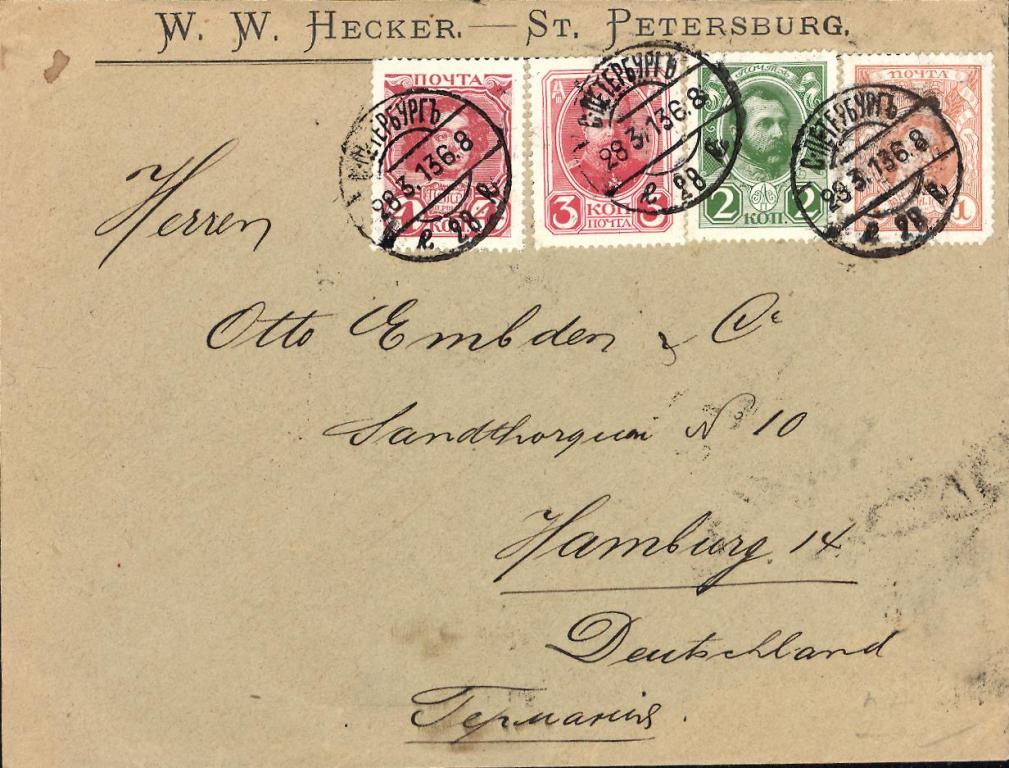 W. W. HECKER. — ST. PETERSBURG.
ПОЧТА
4 4
КОП
3 КОП 3
ПОЧТА
ПОЧТА
2 КОП 2
ПОЧТА
1
С.ПЕТЕРБУРГЪ
28 3.13 6.8
28
С.ПЕТЕРБУРГЪ
28 3.13 6.8
28
С.ПЕТЕРБУРГЪ
28 3.13 6.8
28
Herren
Otto Embden & Ce
Sandthorquai No 10
Hamburg 14
Deutschland
Германія.